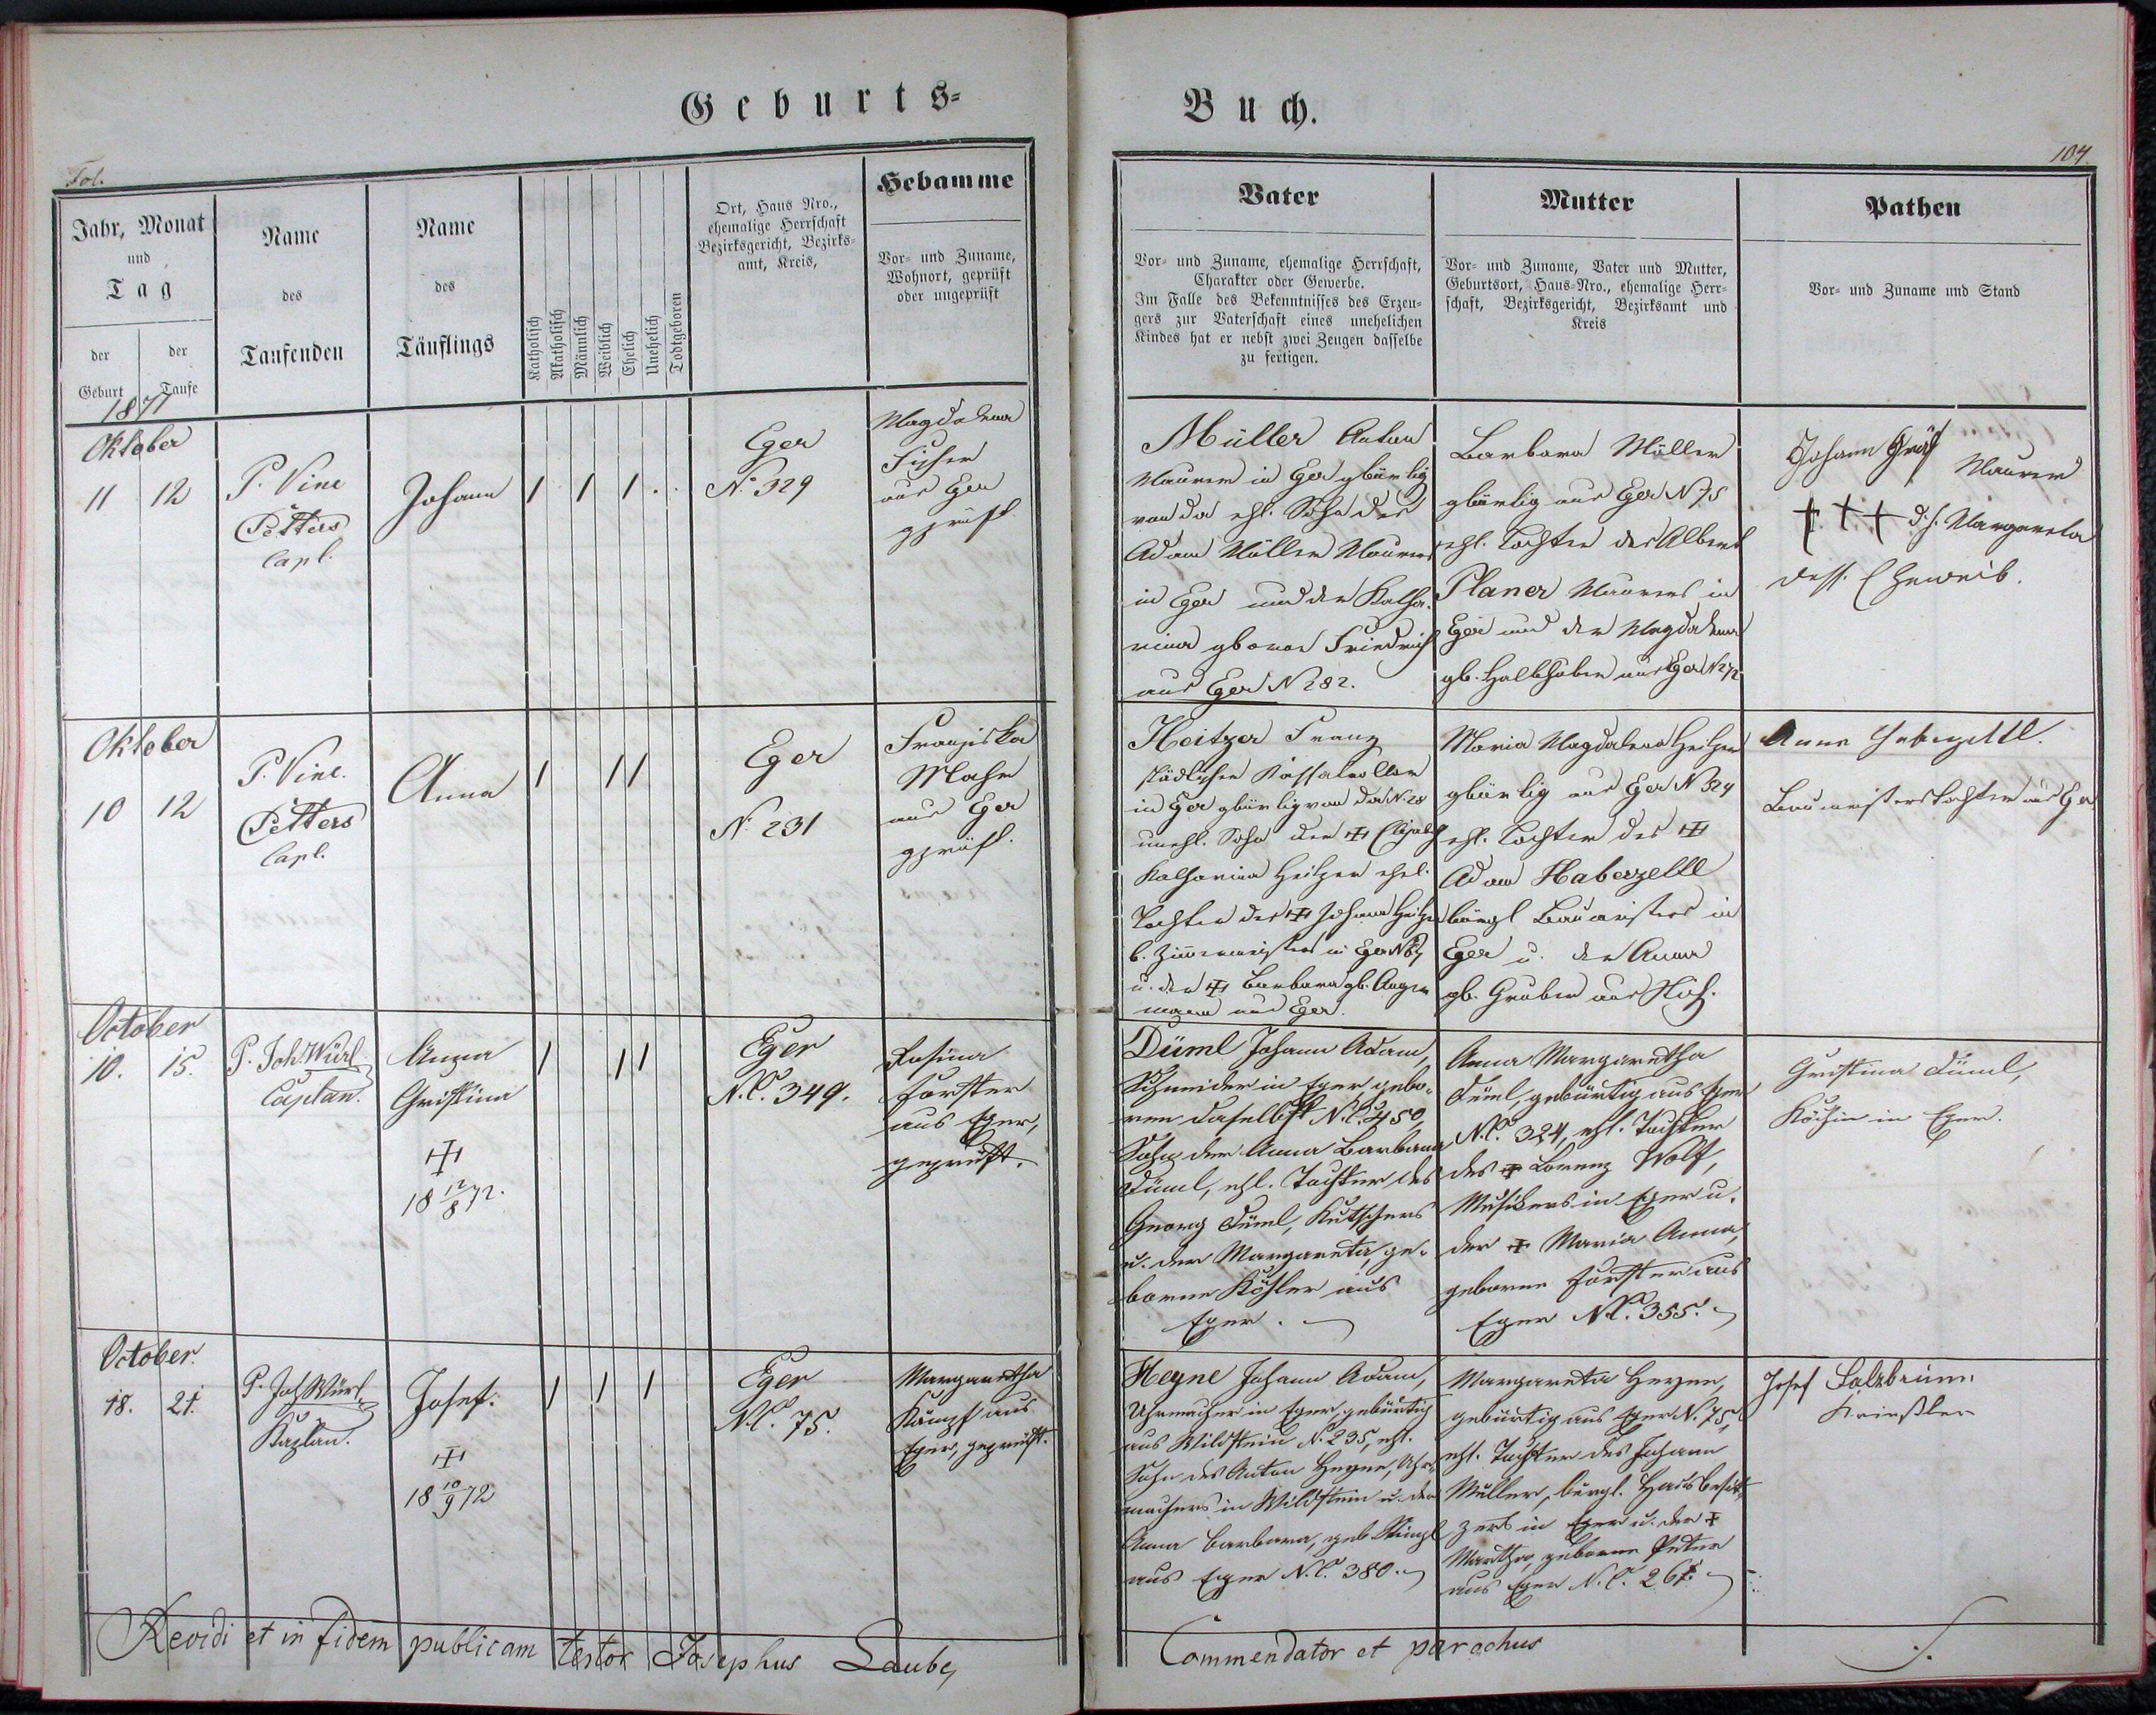 Geburts-
Buch.
Fol.
104
Jahr, Monat
und
Tag
der
Geburt
der
Taufe
Name
des
Taufenden
Name
des
Täuflings
Katholisch
Akatholisch
Männlich
Weiblich
Ehelich
Unehelich
Todtgeboren
Ort, Haus Nro.,
ehemalige Herrschaft
Bezirksgericht, Bezirks-
amt, Kreis,
Hebamme
Vor- und Zuname,
Wohnort, geprüft
oder ungeprüft
Vater
Vor- und Zuname, ehemalige Herrschaft,
Charakter oder Gewerbe.
Im Falle des Bekenntnisses des Erzeu-
gers zur Vaterschaft eines unehelichen
Kindes hat er nebst zwei Zeugen dasselbe
zu fertigen.
Mutter
Vor- und Zuname, Vater und Mutter,
Geburtsort, Haus-Nro., ehemalige Herr-
schaft, Bezirksgericht, Bezirksamt und
Kreis
Pathen
Vor- und Zuname und Stand
1871
Oktober
11 12
P. Vinc
Petters
Capl.
Johann
1 1 1 . .
Eger
N. 329
Magdalena
aus Eger
gprüft
Müller Anton
Maurer in Eger gbürtig
von da ehl. Sohn des
Adam Müller Maurers
in Eger und der Katha-
rina geborne Friedrich
aus Eger N 282.
Barbara Müller
gbürtig aus Eger N 75
ehl. Tochter des Albert
Planer Maurers in
Eger und der Magdalena
gb. Halbhuber aus Eger N 272
Johann Gräf
Maurer
† † † d. h. Margareta
dess. Eheweib.
Oktober
10 12
P. Vinc.
Petters
Capl.
Anna
1 1 1
Eger
N. 231
Franziska
Mahr
aus Eger
gprüft.
Heitzer Franz
städtischer
in Eger gbürtig von da N. 28
unehl. Sohn der ‡
Katharina Heitzer ehel.
Tochter des ‡ Johann Heitzer
b. Zimmermeisters in Eger
u. der ‡ Barbara gb. Anger
mann aus Eger.
Maria Magdalena Heitzer
gbürtig aus Eger N 324
ehl. Tochter des ‡
Adam Haberzettl
bürgl Baumeisters in
Eger u. der Anna
gb. Gruber aus
Anna Haberzettl.
Baumeisterstochter aus Eger
October
10. 15.
P. Joh Würl
Caplan.
Anna
Christina
‡
18 12/8 72.
1 1 1
Eger
N.C. 349.
Rosina
Forster
aus Eger,
geprüft.
Düml Johann Adam,
Schneider in Eger, gebo-
ren daselbst N.C. 450,
Sohn der Anna Barbara
Düml, ehl. Tochter des
Georg Düml, Kutschers
u. der Margareta, ge-
borne Köhler aus
Eger.
Anna Margaretha
Düml, gebürtig aus Eger
N.C. 324, ehl. Tochter
des ‡ Lorenz Wolf,
Musikers in Eger u.
der ‡ Maria Anna,
geborne Forster aus
Eger N.C. 355.
Christina Düml,
Köchin in Eger.
October.
18. 21.
P. Joh Würl
Kaplan.
Josef.
‡
18 10/9 72
1 1 1
Eger
N.C. 75.
Margaretha
Kämpf aus
Eger, geprüft.
Heyne Johann Adam,
Uhrmacher in Eger, gebürtig
aus Wildstein N. 235, ehl.
Sohn des Anton Heyne, Uhr-
machers in Wildstein u. der
Anna Barbara, geb.
aus Eger N.C. 380.
Margareta Heyne,
gebürtig aus Eger N. 75,
ehl. Tochter des Johann
Müller, bürgl. Hausbesit-
zers in Eger u. der ‡
Martha, geborne Peter
aus Eger N.C. 267.
Josef Salzbrunn
Revidi et in fidem publicam testor Josephus Laube,
Commendator et parochus